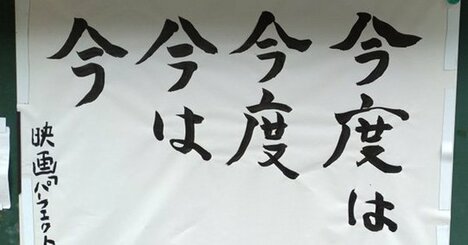 今度は
今度
今は
今
映画『パーフェクト